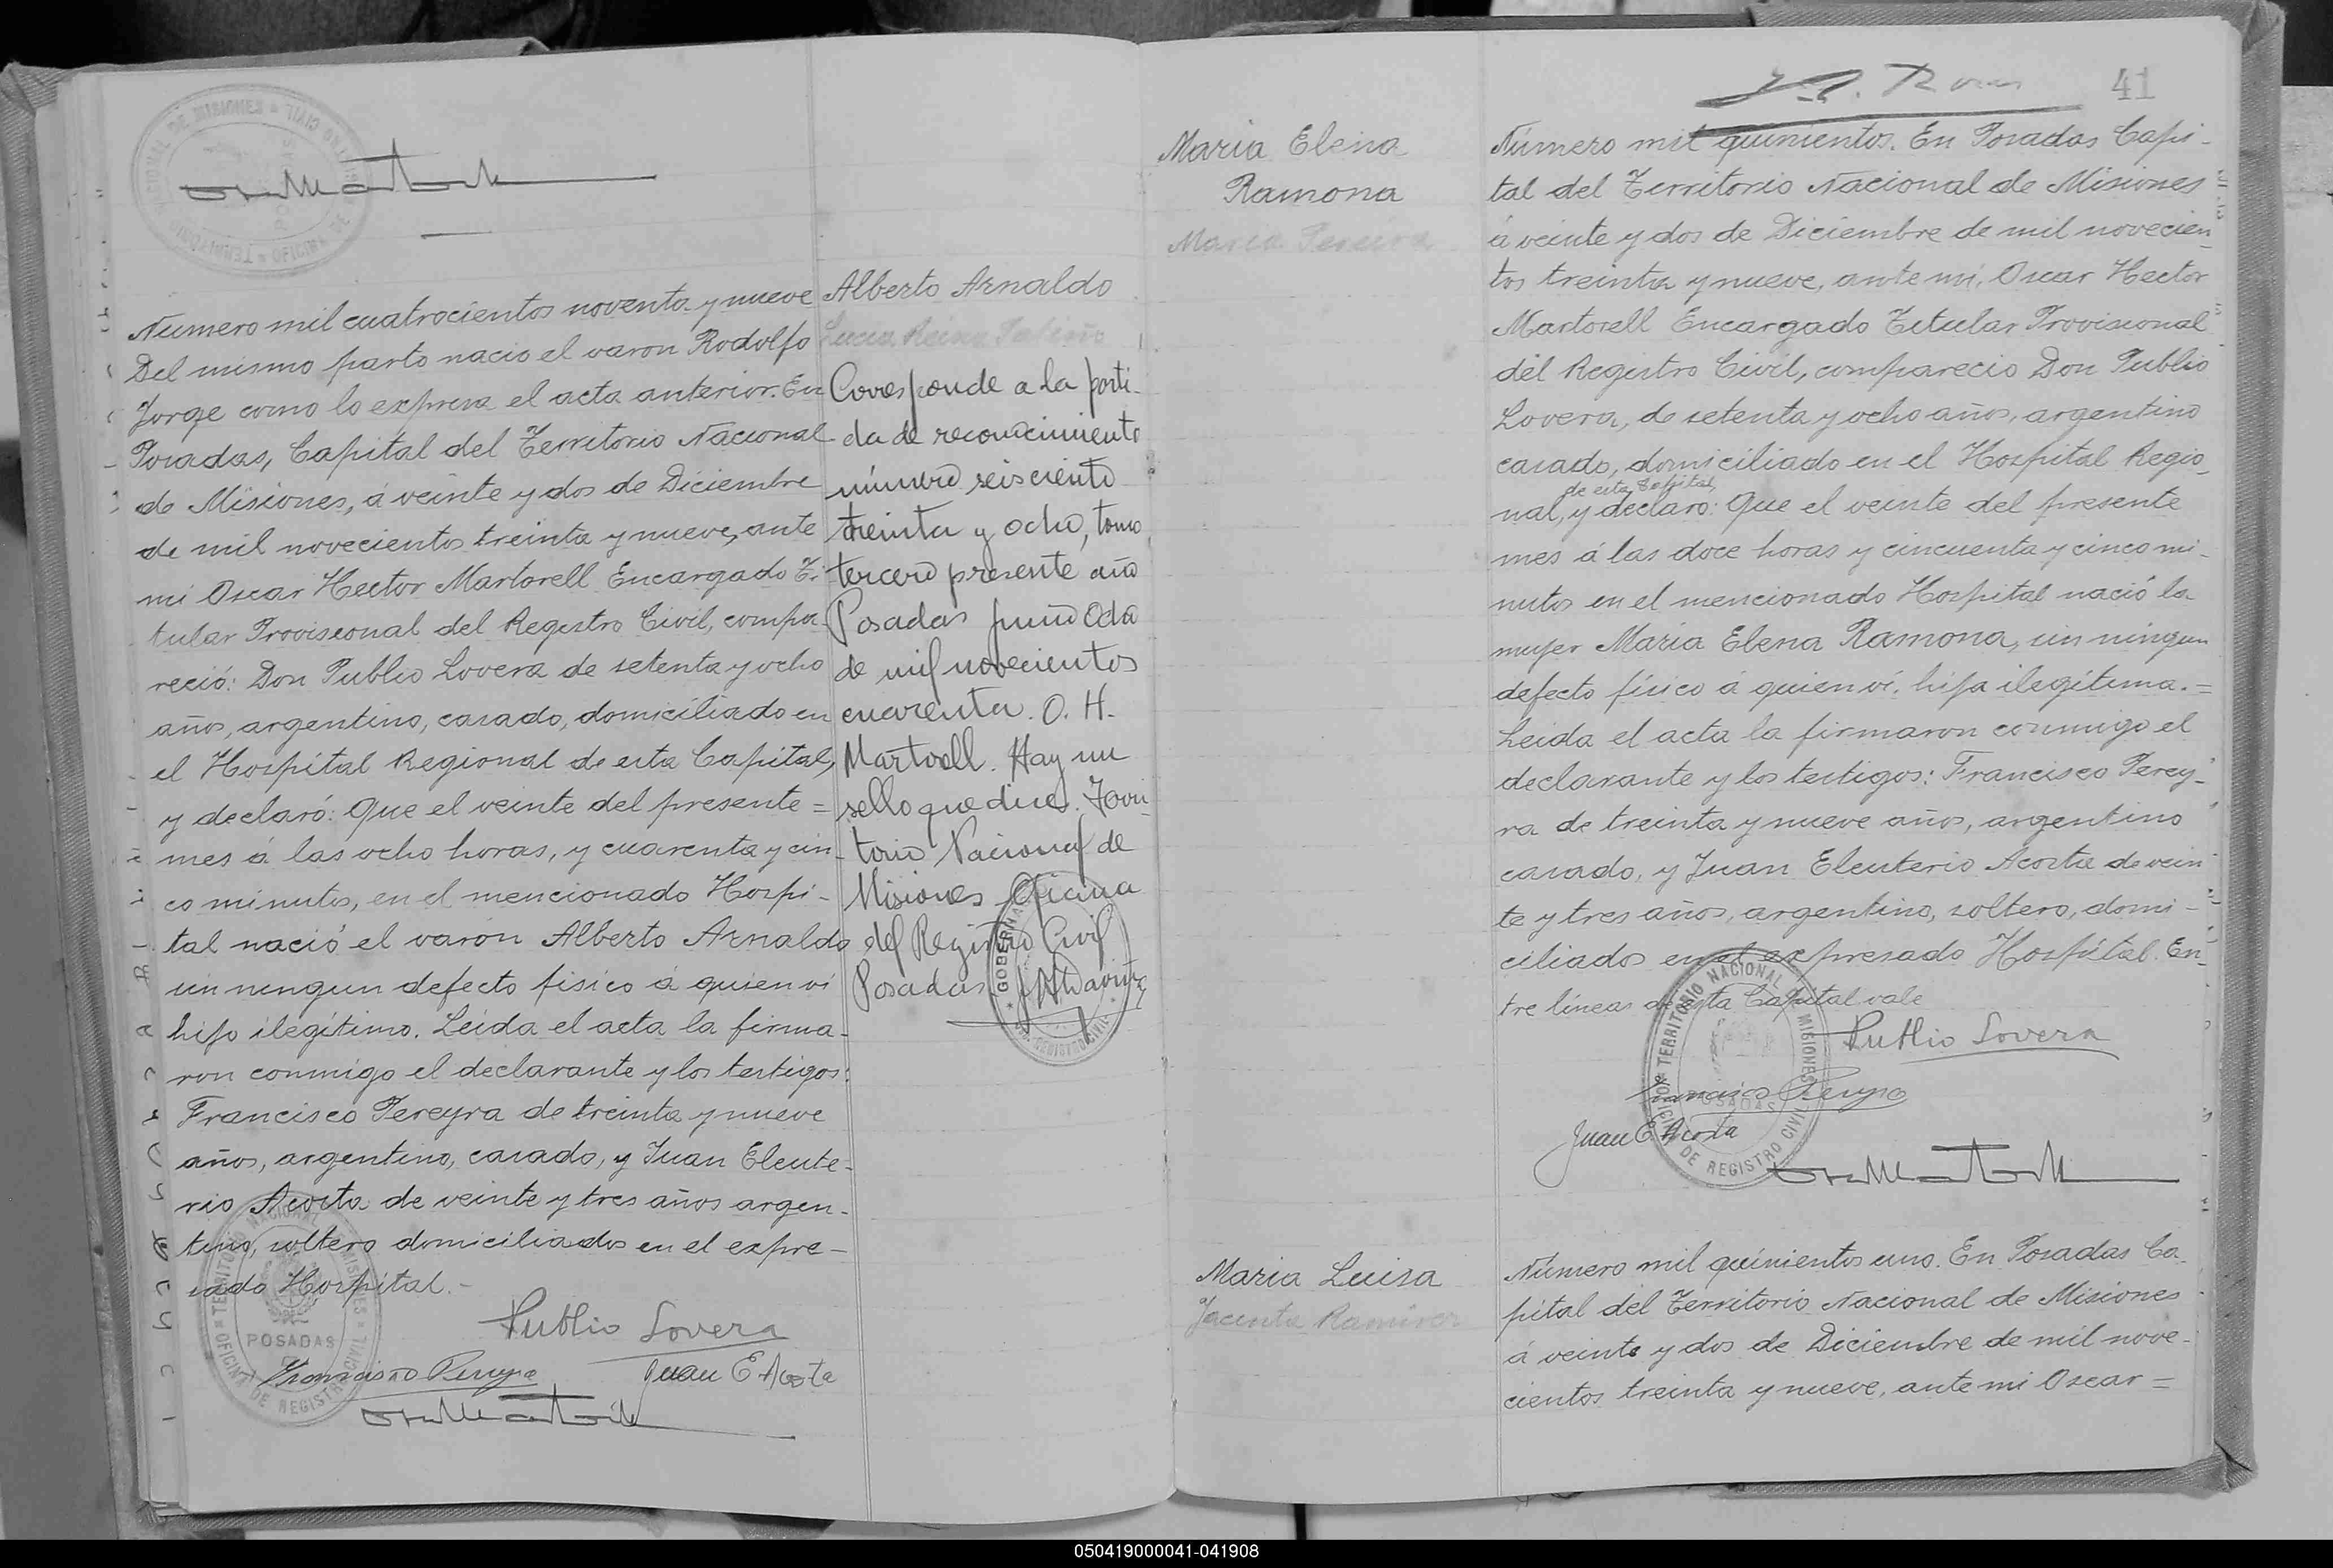 Número mil cuatrocientos noventa y nueve
Del mismo parto nacio el varon Rodolfo
Jorge como lo expresa el acta anterior. En
Posadas, Capital del Territorio Nacional
de Misiones, á veinte y dos de Diciembre
de mil novecientos treinta y nueve, ante
mi Oscar Hector Martorell Encargado Ti-
tular Provisional del Registro Civil, compa-
reció: Don Publio Lovera de setenta y ocho
años, argentino, casado, domiciliado en
el Hospital Regional de esta Capital,
y declaró: Que el veinte del presente =
mes á las ocho horas, y cuarenta y cin-
co minutos, en el mencionado Hospi-
tal nació el varon Alberto Arnaldo
sin ningun defecto fisico á quien ví
hijo ilegítimo. Leida el acta la firma-
ron conmigo el declarante y los testigos:
Francisco Pereyra de treinta y nueve
años, argentino, casado, y Juan Eleute-
rio Acosta de veinte y tres años argen-
tino, soltero domiciliados en el expre-
sado Hospital.-
Publio Lovera
Francisco Pereyra Juan E Acosta
POSADAS
Alberto Arnaldo
Corresponde a la parti-
da de reconocimiento
número seisciento
treinta y ocho, tomo
tercero presente año
Posadas junio ocho
de mil novecientos
cuarenta. O. H.
Martorell. Hay un
sello que dice: Terri-
torio Nacional de
Misiones Oficina
del Registro Civil
Posadas
41
Maria Elena
Ramona
Maria Pereira
Número mil quinientos. En Posadas Capi-
tal del Territorio Nacional de Misiones
á veinte y dos de Diciembre de mil novecien-
tos treinta y nueve, ante mi, Oscar Hector
Martorell Encargado Titular Provisional
del Registro Civil, comparecio Don Publio
Lovera, de setenta y ocho años, argentino
casado, domiciliado en el Hospital Regio-
de esta Capital
nal, y declaró: Que el veinte del presente
mes á las doce horas y cincuenta y cinco mi-
nutos en el mencionado Hospital nació la
mujer Maria Elena Ramona, sin ningun
defecto físico á quien ví, hija ilegítima.=
Leida el acta la firmaron conmigo el
declarante y los testigos: Francisco Perey-
ra de treinta y nueve años, argentino
casado, y Juan Eleuterio Acosta de vein-
te y tres años, argentino, soltero, domi-
ciliados en el expresado Hospital. En-
tre líneas de esta Capital vale
Publio Lovera
Francisco Pereyra
Juan E. Acosta
TERRITORIO NACIONAL DE MISIONES
OFICINA DE REGISTRO CIVIL
POSADAS
Maria Luisa
Jacinta Ramirez
Número mil quinientos uno. En Posadas Ca-
pital del Territorio Nacional de Misiones
á veinte y dos de Diciembre de mil nove-
cientos treinta y nueve, ante mi Oscar =
050419000041-041908